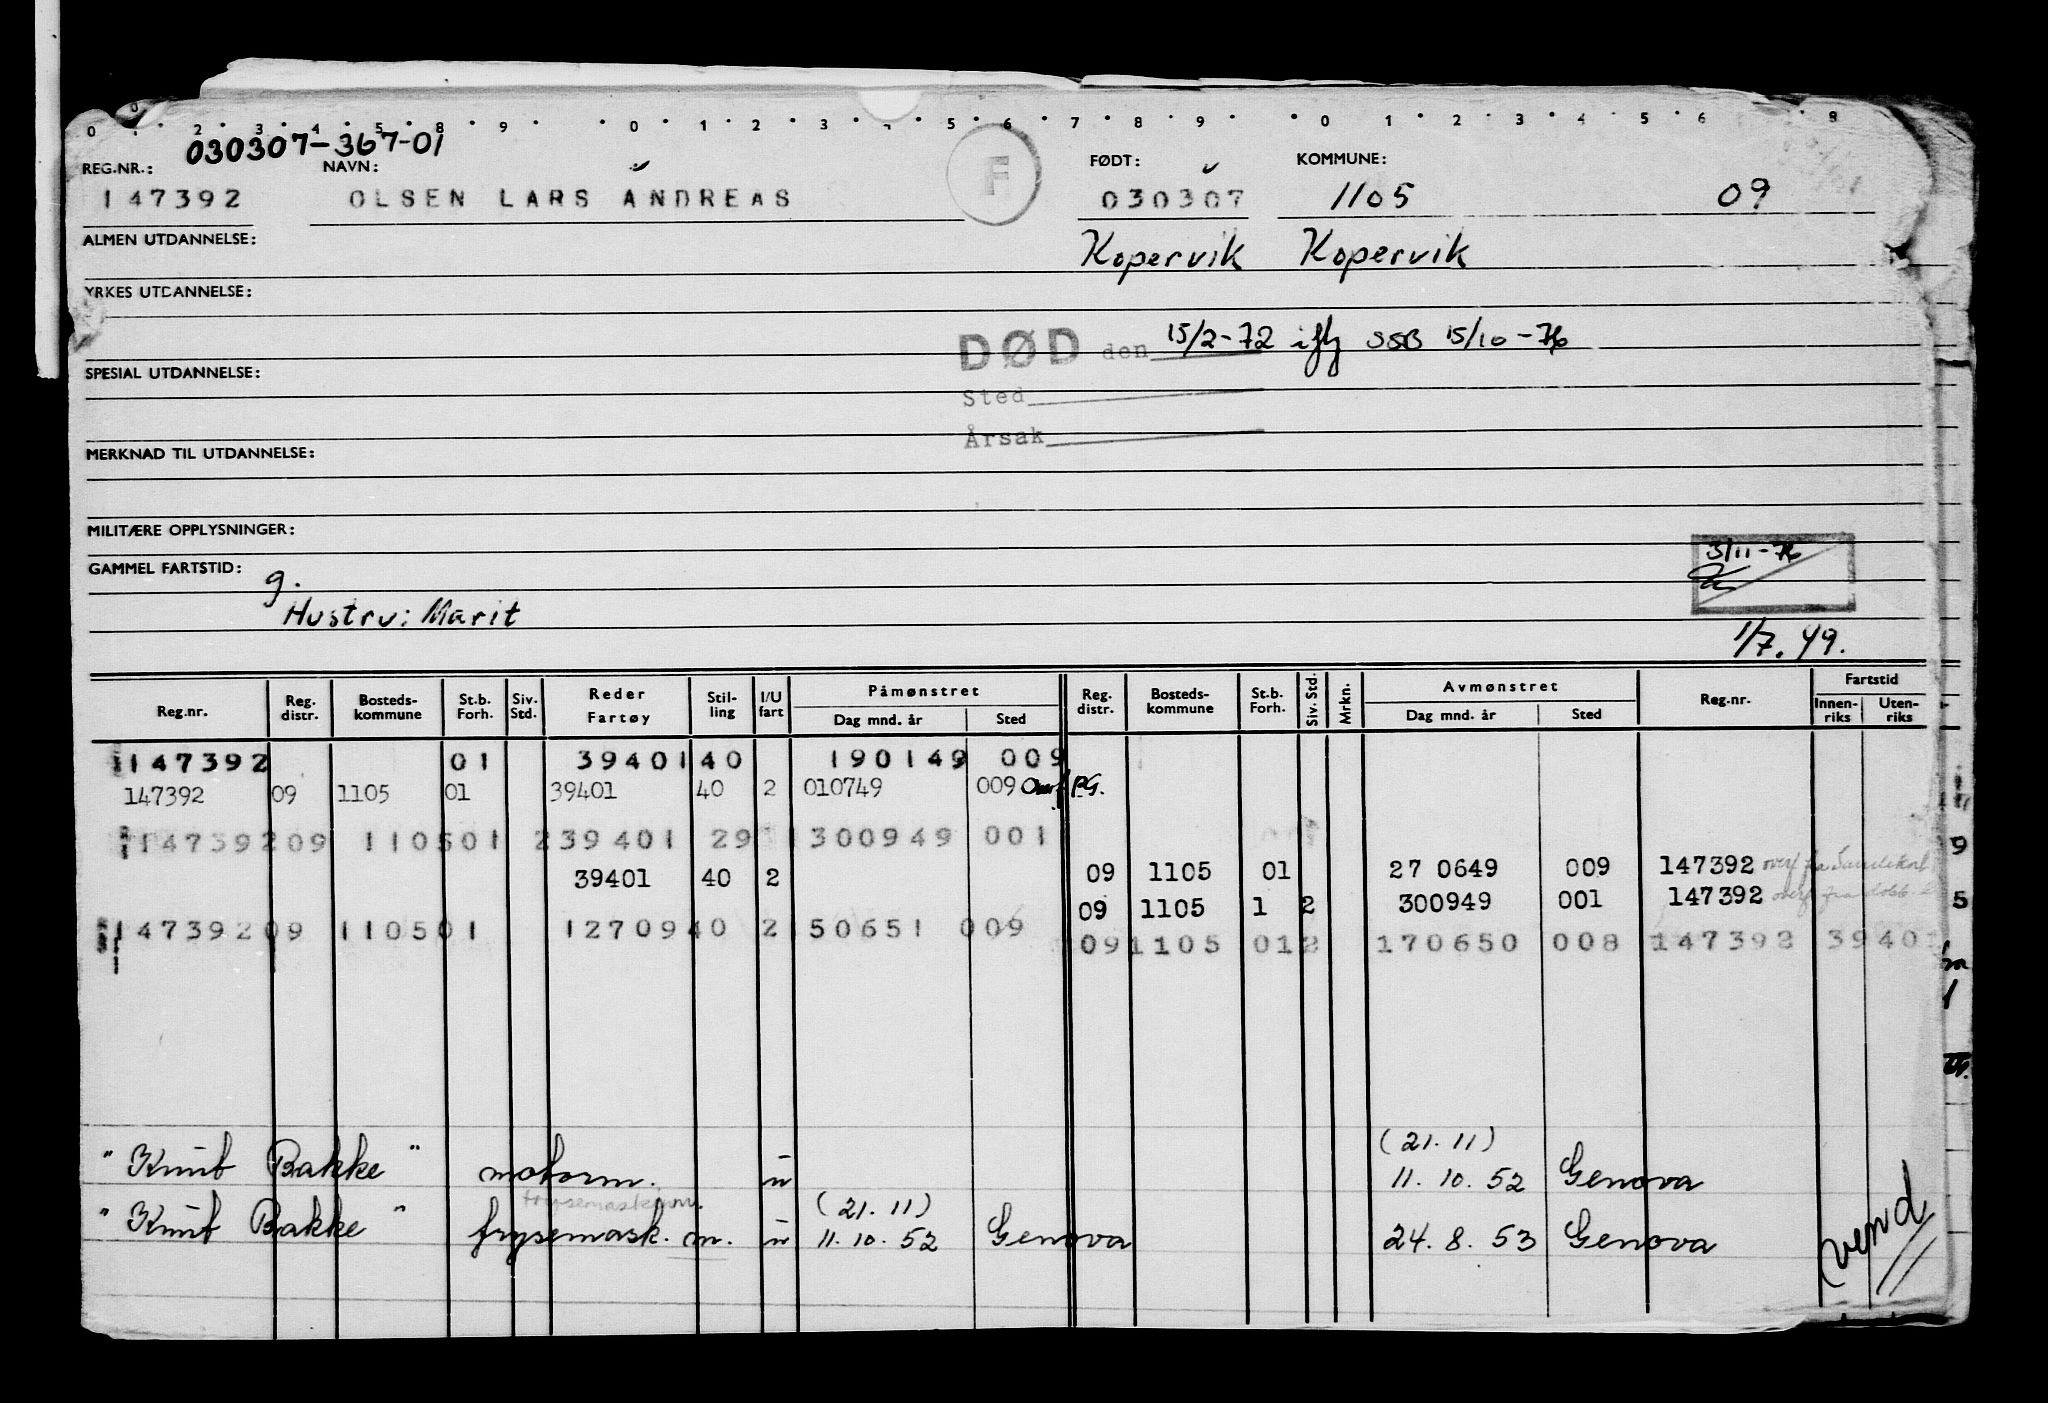 030307-367-01
REG.NR.: NAVN: FØDT: KOMMUNE:
147392 OLSEN LARS ANDREAS F 030307 1105 09
ALMEN UTDANNELSE: Kopervik Kopervik
YRKES UTDANNELSE:
DØD den 15/2-72 iflg SSB 15/10-76
SPESIAL UTDANNELSE:
Sted
Årsak
MERKNAD TIL UTDANNELSE:
MILITÆRE OPPLYSNINGER:
3/11-76
GAMMEL FARTSTID: g.
Hustru: Marit
1/7. 49.
Reg.nr. Reg. distr. Bosteds-kommune St.b. Forh. Siv. Std. Reder Fartøy Stil-ling I/U fart Påmønstret Dag mnd. år Sted Reg. distr. Bosteds-kommune St.b. Forh. Siv. Std. Mrkn. Avmønstret Dag mnd. år Sted Reg.nr. Fartstid Innen-riks Uten-riks
147392 01 39401 40 190149 009
147392 09 1105 01 39401 40 2 010749 009 P.G.
147392 09 1105 01 2 39401 29 300949 001
39401 40 2 09 1105 01 27 0649 009 147392 overf fra
09 1105 1 2 300949 001 147392 overf fra
147392 09 1105 01 12709 40 2 150651 009
09 1105 01 2 170650 008 147392 39401
(21. 11)
"Knut Bakke" motorm. u 11. 10. 52 Genova
frysemaskinm.
(21. 11)
"Knut Bakke" frysemask. m. u 11. 10. 52 Genova 24. 8. 53 Genova
vend